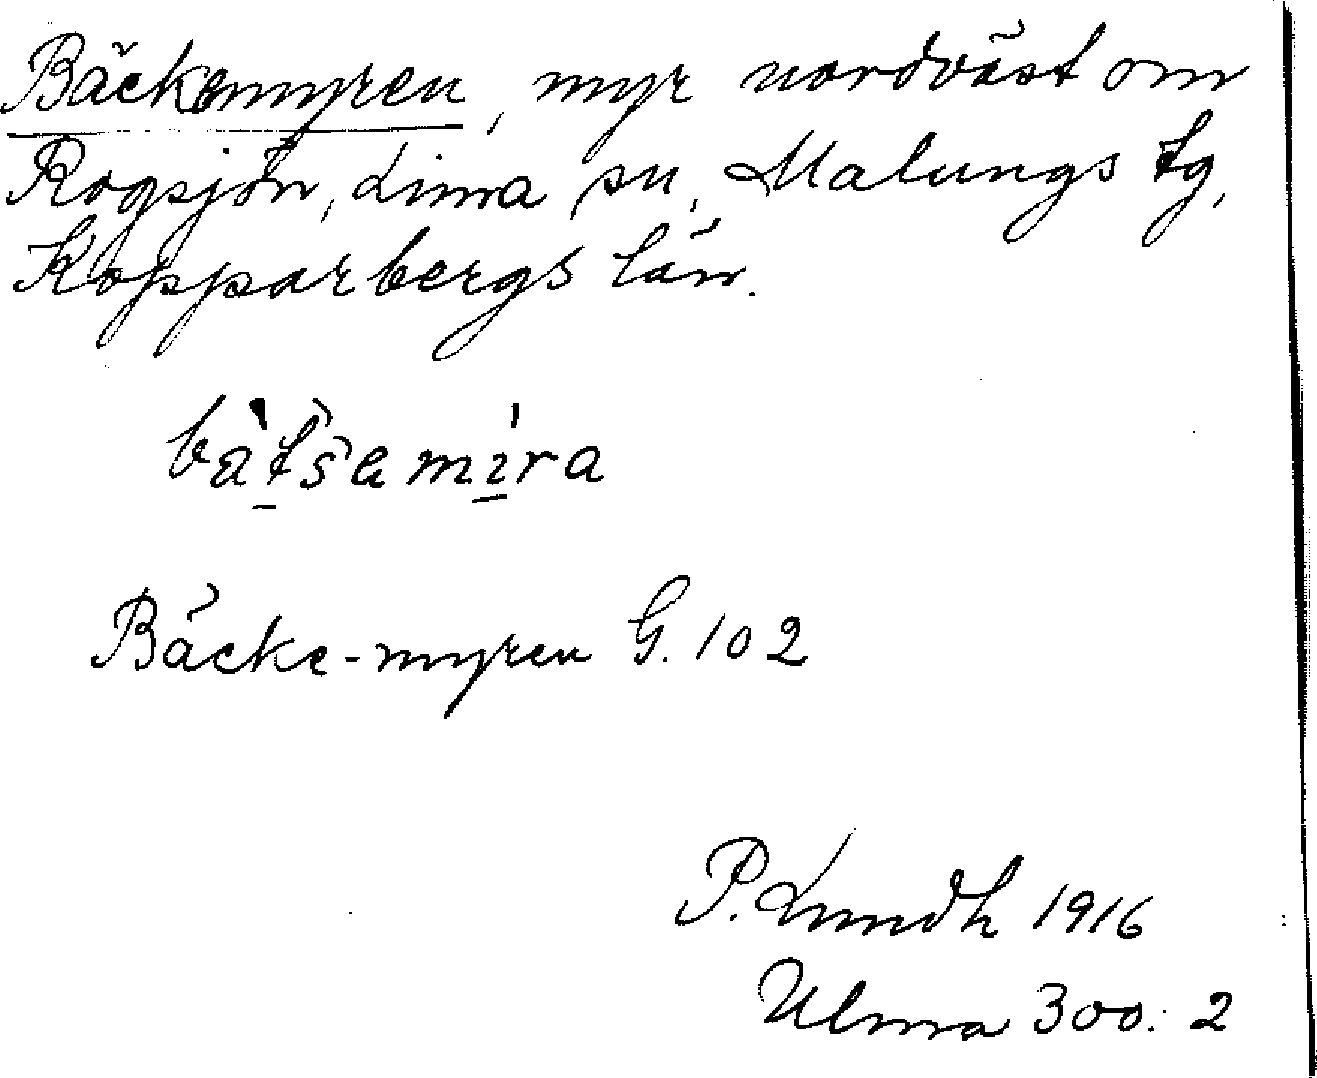 Bäckemyren, myr nordväst om
Rogsjön, Lima sn, Malungs tg,
Kopparbergs län.
bàt̠s̃emi̠ra
Bäcke-myren G. 102
P. Lundh 1916
Ulma 300: 2